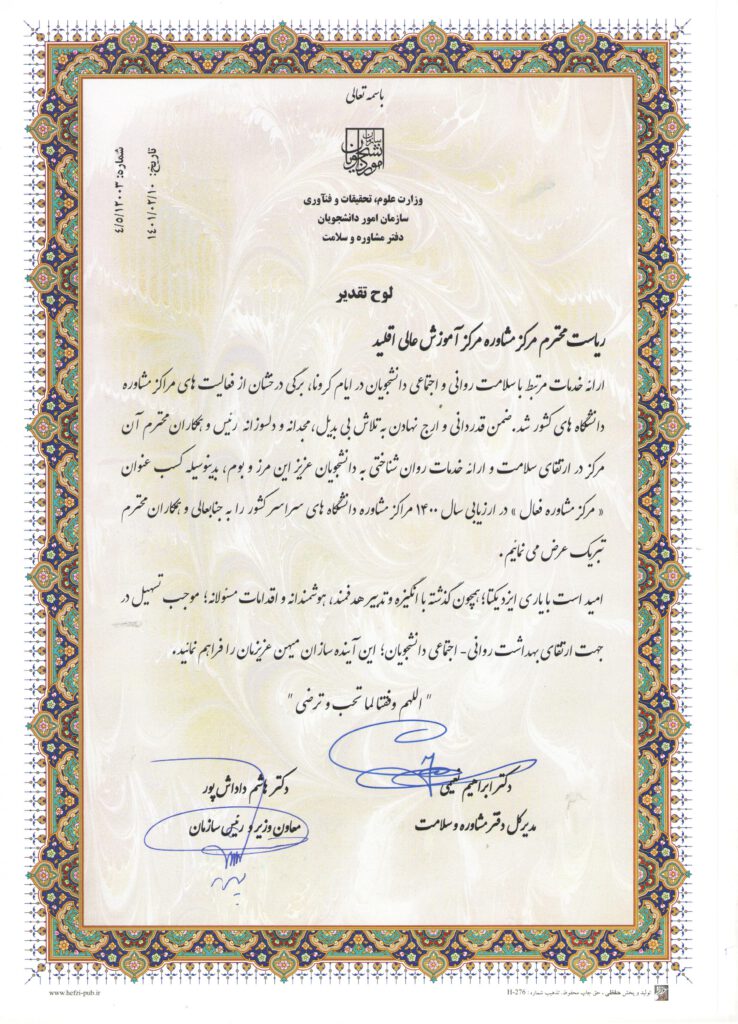 باسمه تعالی
سازمان امور دانشجویان
وزارت علوم، تحقیقات و فنآوری
سازمان امور دانشجویان
دفتر مشاوره و سلامت
تاریخ: ۱۴۰۱/۰۲/۱۰
شماره: ۴/۵/۱۲۰۰۳
لوح تقدیر
ریاست محترم مرکز مشاوره مرکز آموزش عالی اقلید
ارائه خدمات مرتبط با سلامت روانی و اجتماعی دانشجویان در ایام کرونا، برگی درخشان از فعالیت های مراکز مشاوره
دانشگاه های کشور شد. ضمن قدردانی و ارج نهادن به تلاش بی بدیل، مجدانه و دلسوزانه رئیس و همکاران محترم آن
مرکز در ارتقای سلامت و ارائه خدمات روان شناختی به دانشجویان عزیز این مرز و بوم، بدینوسیله کسب عنوان
« مرکز مشاوره فعال » در ارزیابی سال ۱۴۰۰ مراکز مشاوره دانشگاه های سراسر کشور را به جنابعالی و همکاران محترم
تبریک عرض می نمائیم .
امید است با یاری ایزد یکتا؛ همچون گذشته با انگیزه و تدبیر هدفمند، هوشمندانه و اقدامات مسئولانه؛ موجب تسهیل در
جهت ارتقای بهداشت روانی- اجتماعی دانشجویان؛ این آینده سازان میهن عزیزمان را فراهم نمائید.
" اللهم وفقنا لما تحب و ترضی "
دکتر ابراهیم نعیمی
مدیرکل دفتر مشاوره و سلامت
دکتر هاشم داداش پور
معاون وزیر و رئیس سازمان
تولید و پخش حفظی ، حق چاپ محفوظ. تذهیب شماره: H-276
www.hefzi-pub.ir